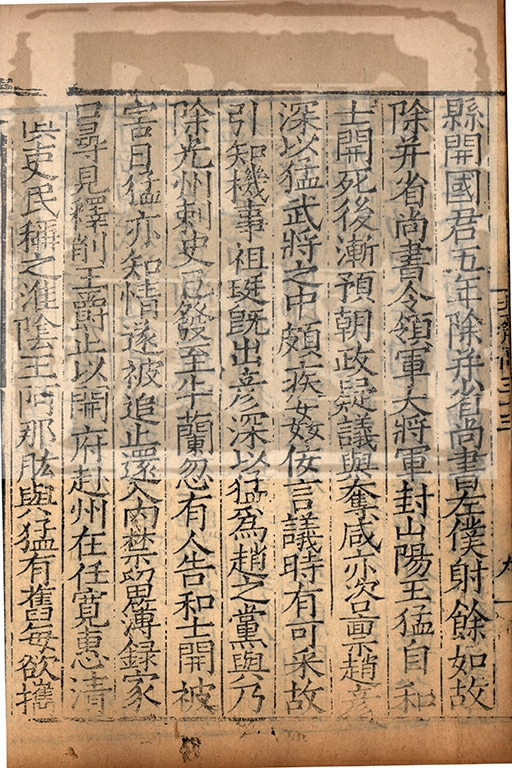 縣開國君五年除并省尚書左僕射餘如故
除并省尚書令領軍大將軍封山陽王猛自和
士開死後漸預朝政疑議與奪咸亦咨禀趙彥
深以猛武將之中頗疾姦佞言議時有可采故
引知機事祖珽既出彥深以猛為趙之黨與乃
除光州刺史已發至牛蘭忽有人告和士開被
害日猛亦知情遂被追止還入內禁留簿録家
口尋見釋削王爵止以開府赴州在任寬惠清
吏民稱之淮陰王阿那肱與猛有舊每欲攜